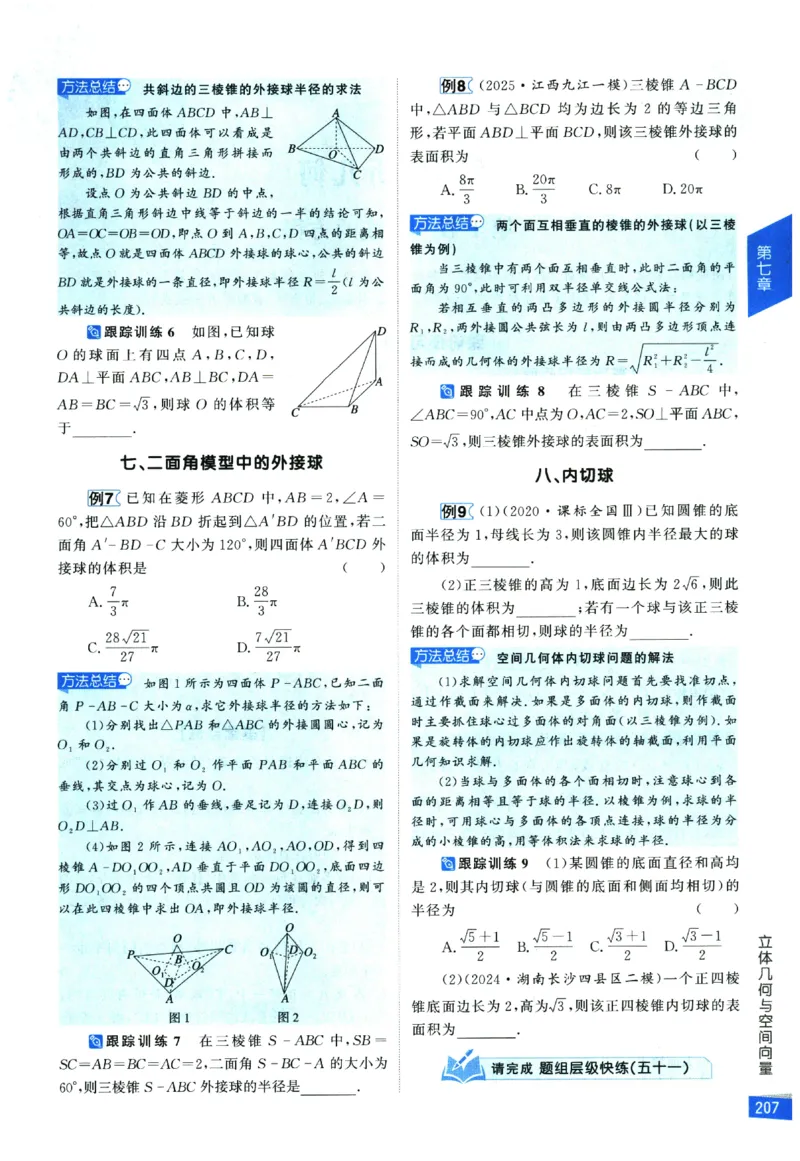 方法总结 共斜边的三棱锥的外接球半径的求法
如图,在四面体 ABCD 中,AB⊥
AD,CB⊥CD,此四面体可以看成是
由两个共斜边的直角三角形拼接而
形成的,BD 为公共的斜边.
A
B
O
D
C
设点 O 为公共斜边 BD 的中点,
根据直角三角形斜边中线等于斜边的一半的结论可知,
OA=OC=OB=OD,即点 O 到 A,B,C,D 四点的距离相
等,故点 O 就是四面体 ABCD 外接球的球心,公共的斜边
BD 就是外接球的一条直径,即外接球半径 R=l/2(l 为公
共斜边的长度).
跟踪训练 6 如图,已知球
O 的球面上有四点 A,B,C,D,
DA⊥平面 ABC,AB⊥BC,DA=
AB=BC=√3,则球 O 的体积等
于______.
D
A
C
B
七、二面角模型中的外接球
例7 已知在菱形 ABCD 中,AB=2,∠A=
60°,把△ABD 沿 BD 折起到△A′BD 的位置,若二
面角 A′-BD-C 大小为 120°,则四面体 A′BCD 外
接球的体积是 ( )
A. 7/3 π B. 28/3 π
C. 28√21/27 π D. 7√21/27 π
方法总结 如图 1 所示为四面体 P-ABC,已知二面
角 P-AB-C 大小为α,求它外接球半径的方法如下:
(1)分别找出△PAB 和△ABC 的外接圆圆心,记为
O₁ 和 O₂.
(2)分别过 O₁ 和 O₂ 作平面 PAB 和平面 ABC 的
垂线,其交点为球心,记为 O.
(3)过O₁ 作 AB 的垂线,垂足记为 D,连接O₂D,则
O₂D⊥AB.
(4)如图 2 所示,连接 AO₁,AO₂,AO,OD,得到四
棱锥 A-DO₁OO₂,AD 垂直于平面 DO₁OO₂,底面四边
形 DO₁OO₂ 的四个顶点共圆且 OD 为该圆的直径,则可
以在此四棱锥中求出 OA,即外接球半径.
O
P
B
C
O₁
O₂
D
A
图1
O
O₁
D
O₂
A
图2
跟踪训练 7 在三棱锥 S-ABC 中,SB=
SC=AB=BC=AC=2,二面角 S-BC-A 的大小为
60°,则三棱锥 S-ABC 外接球的半径是______.
例8 (2025·江西九江一模)三棱锥 A-BCD
中,△ABD 与△BCD 均为边长为 2 的等边三角
形,若平面 ABD⊥平面 BCD,则该三棱锥外接球的
表面积为 ( )
A. 8π/3 B. 20π/3 C. 8π D. 20π
方法总结 两个面互相垂直的棱锥的外接球(以三棱
锥为例)
当三棱锥中有两个面互相垂直时,此时二面角的平
面角为 90°,此时可利用双半径单交线公式法:
若相互垂直的两凸多边形的外接圆半径分别为
R₁,R₂,两外接圆公共弦长为 l,则由两凸多边形顶点连
接而成的几何体的外接球半径为 R=√(R₁²+R₂²-l²/4).
跟踪训练 8 在三棱锥 S-ABC 中,
∠ABC=90°,AC 中点为O,AC=2,SO⊥平面 ABC,
SO=√3,则三棱锥外接球的表面积为______.
八、内切球
例9 (1)(2020·课标全国Ⅲ)已知圆锥的底
面半径为 1,母线长为 3,则该圆锥内半径最大的球
的体积为______.
(2)正三棱锥的高为 1,底面边长为 2√6,则此
三棱锥的体积为______;若有一个球与该正三棱
锥的各个面都相切,则球的半径为______.
方法总结 空间几何体内切球问题的解法
(1)求解空间几何体内切球问题首先要找准切点,
通过作截面来解决.如果是多面体的内切球,则作截面
时主要抓住球心过多面体的对角面(以三棱锥为例).如
果是旋转体的内切球应作出旋转体的轴截面,利用平面
几何知识求解.
(2)当球与多面体的各个面相切时,注意球心到各
面的距离相等且等于球的半径.以棱锥为例,求球的半
径时,可用球心与多面体的各顶点连接,球的半径为分
成的小棱锥的高,用等体积法来求球的半径.
跟踪训练 9 (1)某圆锥的底面直径和高均
是 2,则其内切球(与圆锥的底面和侧面均相切)的
半径为 ( )
A. (√5+1)/2 B. (√5-1)/2 C. (√3+1)/2 D. (√3-1)/2
(2)(2024·湖南长沙四县区二模)一个正四棱
锥底面边长为 2,高为√3,则该正四棱锥内切球的表
面积为______.
请完成 题组层级快练(五十一)
第七章
立体几何与空间向量
207